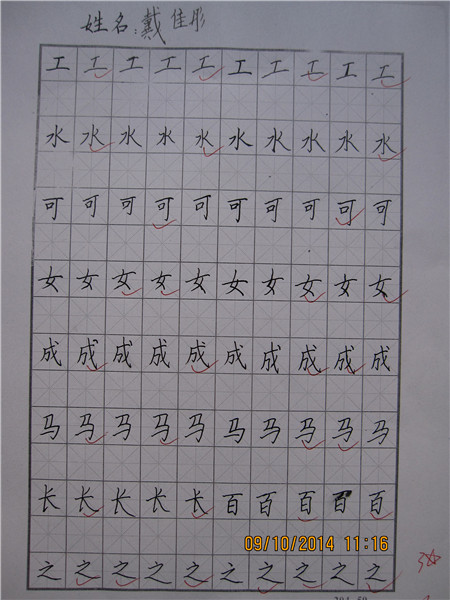 姓名:戴佳彤
工工工工工工工工工工
水水水水水水水水水水
可可可可可可可可可可
女女女女女女女女女女
成成成成成成成成成成
马马马马马马马马马马
长长长长长百百百百百
之之之之之之之之之之
09/10/2014 11:16